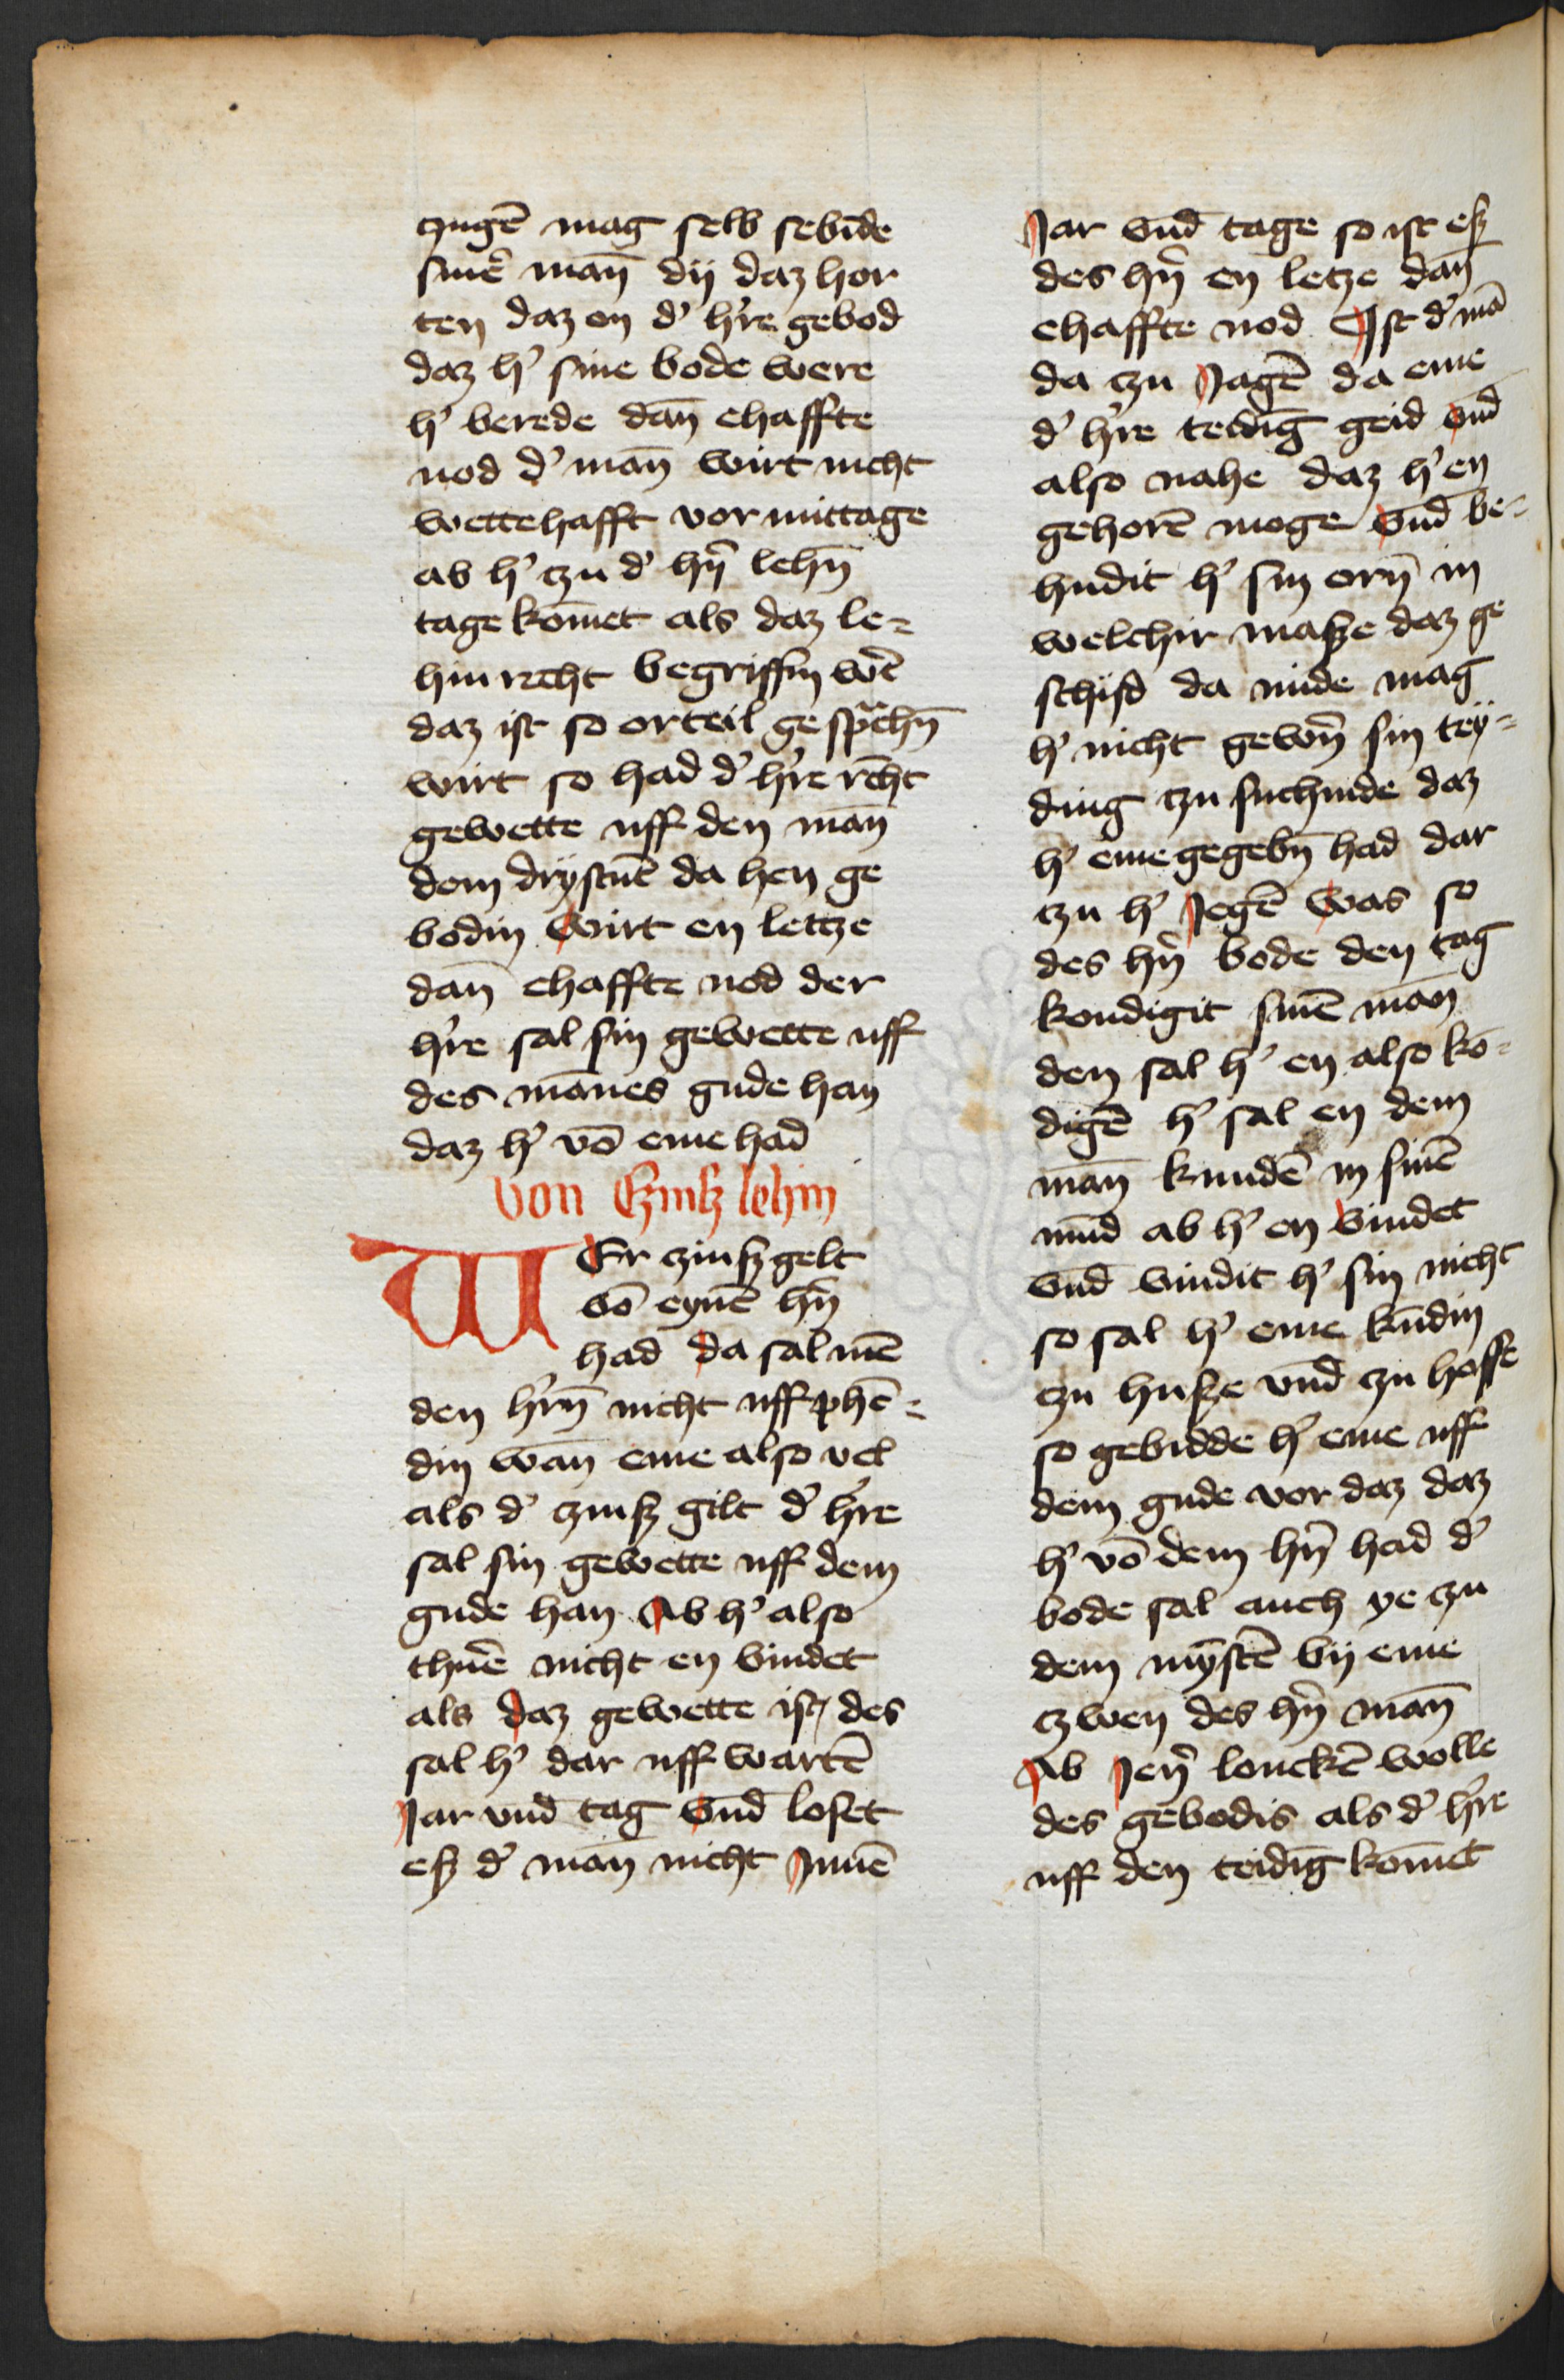 czugē mag selb sebīde
sinēr man̄ dij daz hor
ten daz on d' h're gebod
daz h' sine bode were
h' berede dan̄ ehaffte
nod d' man̄ wirt nicht
wettehafft vor mittage
ab h' czu d' hr̄n lehn̄
tage kom̄et als daz le⸗
hin recht begriffin wˀt
daz ist so orteil gesp̄chn̄
wirt so had d' h're recht
gewette uff den man̄
dem drystūt da hen ge
bodin wirt en letcze
dan̄ ehaffte nod der
h're sal sin gewette uff
des man̄es gude han
daz h' vō eme had
Von Czinsz lehin
WEr zinsz gelt
vō eynē hr̄n
had da sal mē
den h'rn̄ nicht uff phē⸗
din wan̄ eme also vel
als d' czinsz gilt d' h're
sal sin gewette uff dem
gude han Ab h' also
thuē nicht en vindet
als daz gewette ist des
sal h' dar uff wartē
Jar vnd̄ tag vnd̄ loset
esz d' man̄ nicht Jnnē
Jar vnd̄ tage so ist esz
des hr̄n en letze dan̄
ehaffte nod Ist d' mā
da czu Jagē da eme
d' h're teiding geid vnd̄
also nahe daz h' en
gehorē moge vnd̄ be⸗
hudit h' sin orn̄ in
welchir masze daz ge
schisd da mide mag
h' nicht gewn̄ sin tey⸗
ding czu suchinde daz
h' eme gegebn̄ had dar
czu h' Jegē was so
des hr̄n bode den tag
kondigit sinē man̄
den sal h' en also kō⸗
digē h' sal en dem
man̄ kundē in sinē
mūd ab h' en vindet
vnd̄ vindit h' sin nicht
so sal h' eme kūdin
czu husze vnd̄ czu hoffe
so gebidde h' eme uff
dem gude vor daz daz
h' vō dem hr̄n had d'
bode sal auch ye czu
dem mȳstē bij eme
czwen des hr̄n man̄
Ab Jenˀ louckē wolle
des gebodis als d' h're
uff den teidīg kom̄et